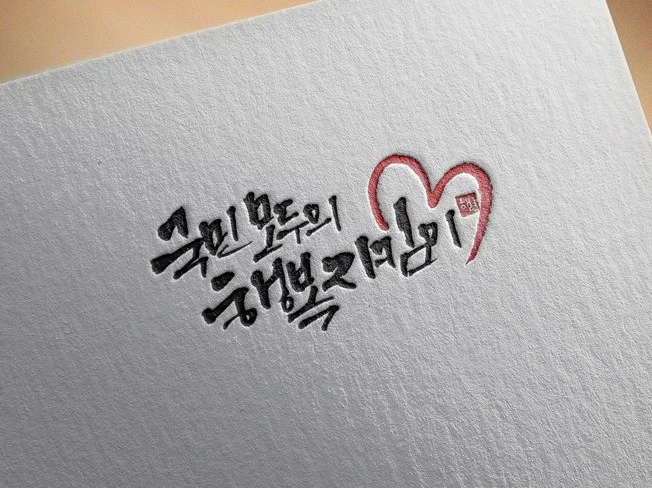 국민 모두의
행복지킴이